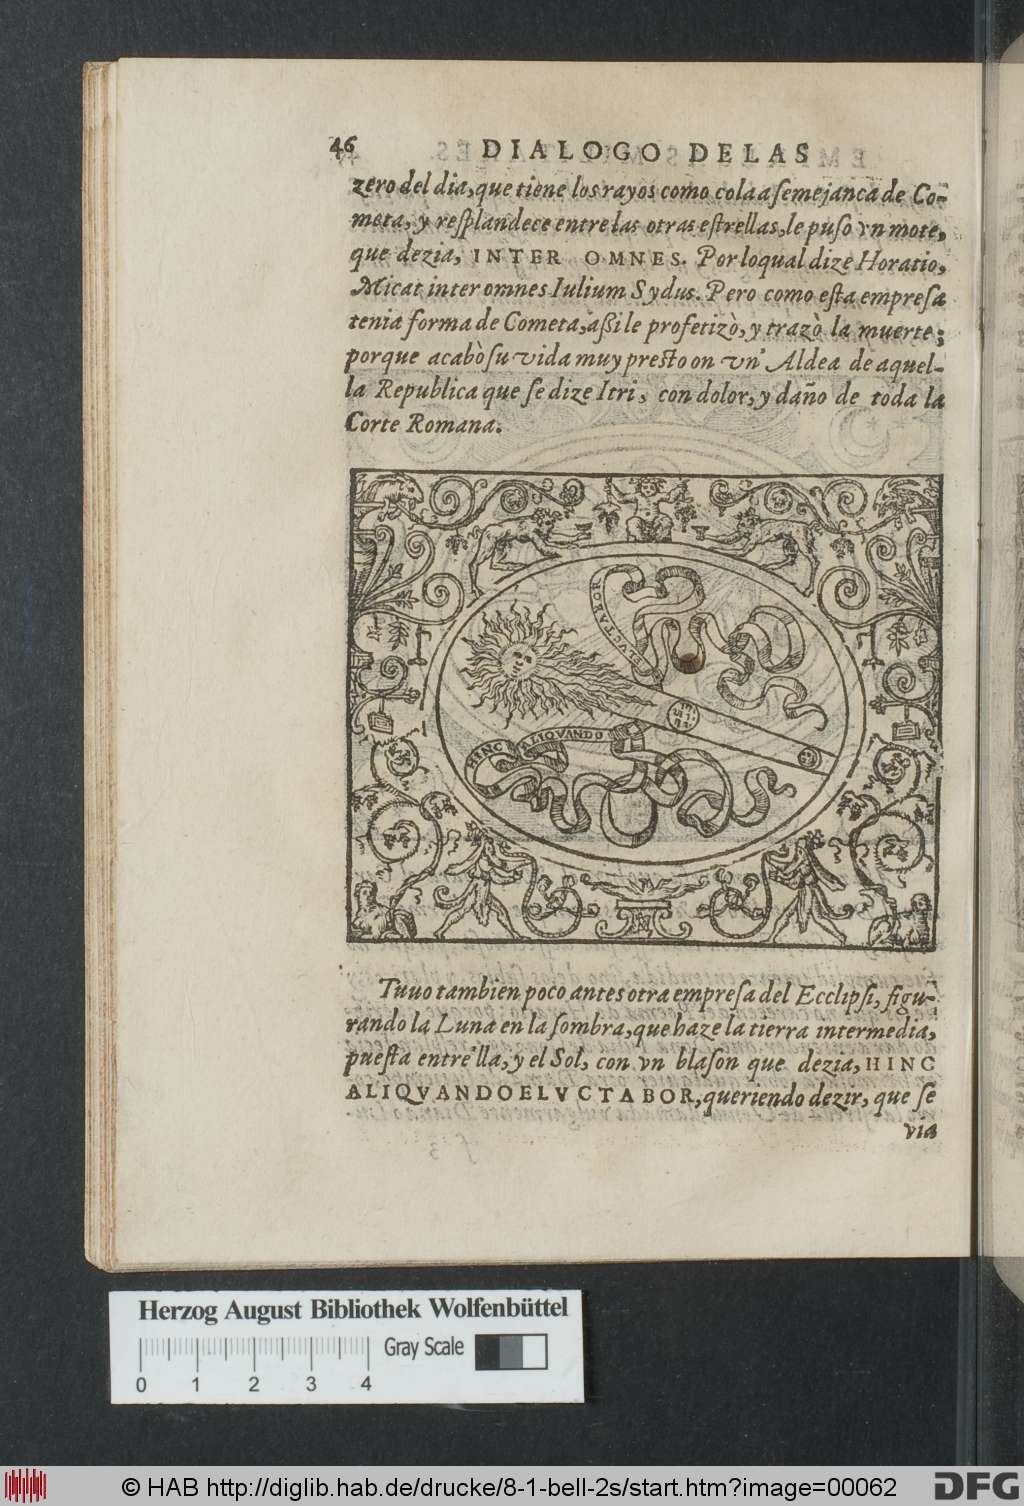 46 DIALOGO DE LAS
zero del dia, que tiene los rayos como cola a semejanca de Co-
meta, y resplandece entre las otras estrellas, le puso vn mote,
que dezia, INTER OMNES. Por loqual dize Horatio,
Micat inter omnes Iulium Sydus. Pero como esta empresa
tenia forma de Cometa, aßi le profetizò, y trazò la muerte;
porque acabò su vida muy presto on vn' Aldea de aquel-
la Republica que se dize Itri, con dolor, y daño de toda la
Corte Romana.
ELVCTABOR
HINC ALIQVANDO
Tuuo tambien poco antes otra empresa del Ecclipsi, figu-
rando la Luna en la sombra, que haze la tierra intermedia,
puesta entre'lla, y el Sol, con vn blason que dezia, HINC
ALIQVANDO ELVCTABOR, queriendo dezir, que se
via
Herzog August Bibliothek Wolfenbüttel
Gray Scale
0 1 2 3 4
© HAB http://diglib.hab.de/drucke/8-1-bell-2s/start.htm?image=00062
DFG